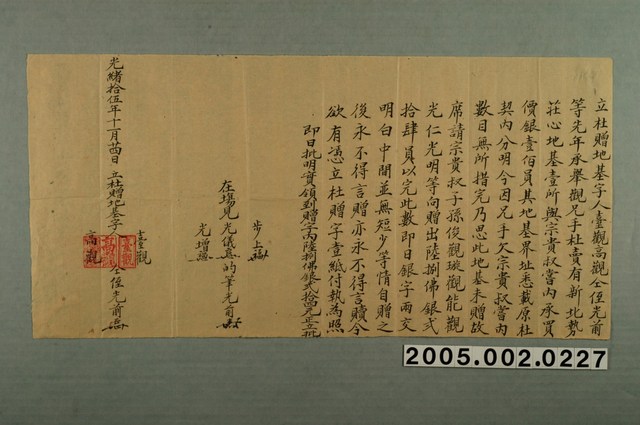 立杜贈地基字人臺觀高觀仝侄光前
等先年承舉觀兄手杜賣有新北勢
莊心地基壹所與宗貴叔當內承買
價銀壹佰員其地基界址悉載原杜
契內分明今因兄手欠宗貴叔當內
數目無所措完乃思此地基未贈故
席請宗貴叔子孫俊觀璇觀能觀
光仁光明等向贈出陸捌佛銀弍
拾肆員以完此數即日銀字兩交
明白中間並無短少等情自贈之
後永不得言贈亦永不得言贖今
欲有憑立杜贈字壹紙付執為照
即日批明實領到贈字內陸捌佛銀弍拾四元正立批
步上
在場見 光儀
的筆光前
光增
光緒拾伍年十一月 日 立杜贈地基字人
臺觀
高觀
仝侄光前
2005.002.0227